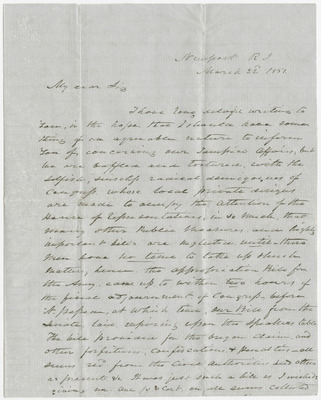 Newport R.I.
March 22 1851.
My dear Sir
I have long delayed writing to
you, in the hope that I should have some
thing of an agreable nature to inform
you of concerning our Tampico Affairs, but
we are baffled and tortured, with the
selfish, unself radical demagogues of
Congress whose local private designs
are made to occupy the attention of the
House of Representatives, in so much that
many other Public Measures, and highly
important bills are neglected until there
is no time to take up Such
matters, hence the appropriation Bill for
the Army, came up to within two hours of
the final adjournment of Congress, before
it passed, at which time our Bill from the
Senate laid upon the Speakers table
The bill provided for the Oregon claim, and
other forfeitures, Confiscations, & penalties all
sums from the Civil authorities and others
as present & It was just such a bill as I wished
giving me on all sums collected